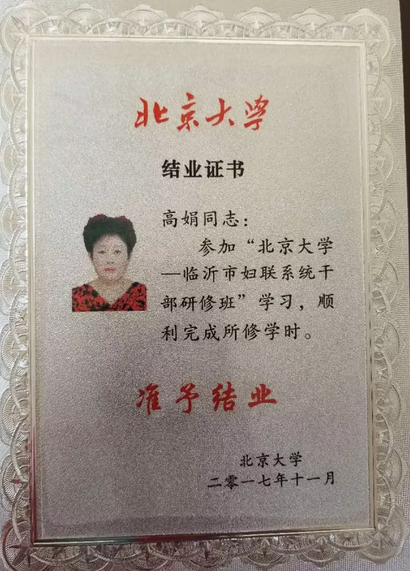 北京大学
结业证书
高娟同志：
参加“北京大学
—临沂市妇联系统干
部研修班”学习，顺
利完成所修学时。
准予结业
北京大学
二零一七年十一月